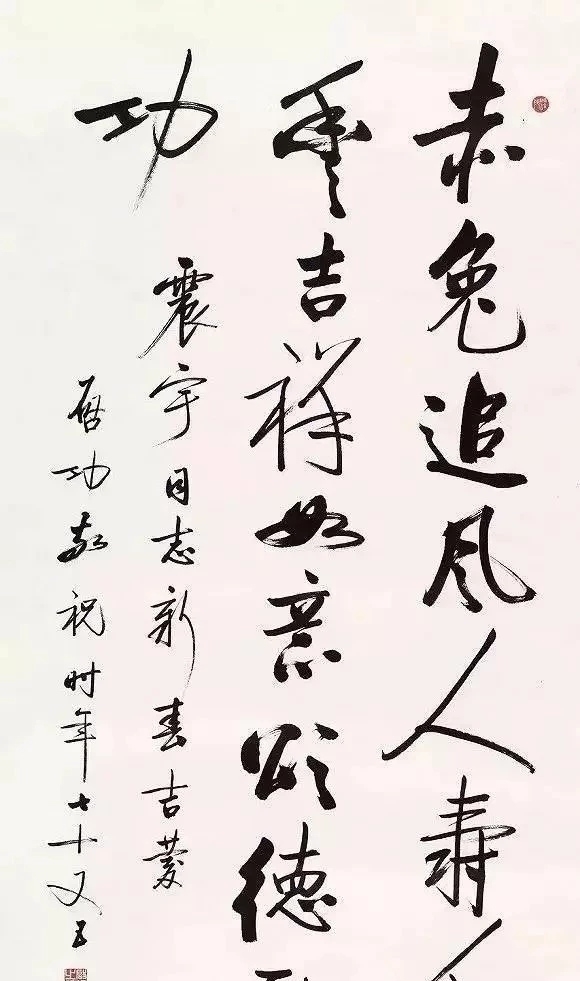 赤兔追风人寿
丰吉祥如意颂德
功
震宇同志新春吉慶
启功敬祝时年七十又五